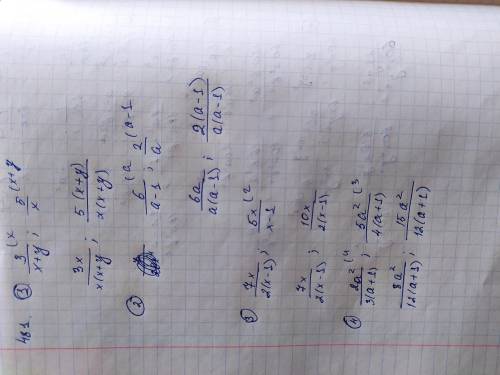 481. ① 3/(x+y) (x ; 5/x (x+y
3x/x(x+y ; 5(x+y)/x(x+y)
② 6/(a-1) (a ; 2/a (a-1
6a/a(a-1) ; 2(a-1)/a(a-1)
③ 7x/2(x-1) ; 5x/(x-1) (2
7x/2(x-1) ; 10x/2(x-1)
④ 2a²/3(a+1) (4 ; 5a²/4(a+1) (3
8a²/12(a+1) ; 15a²/12(a+1)